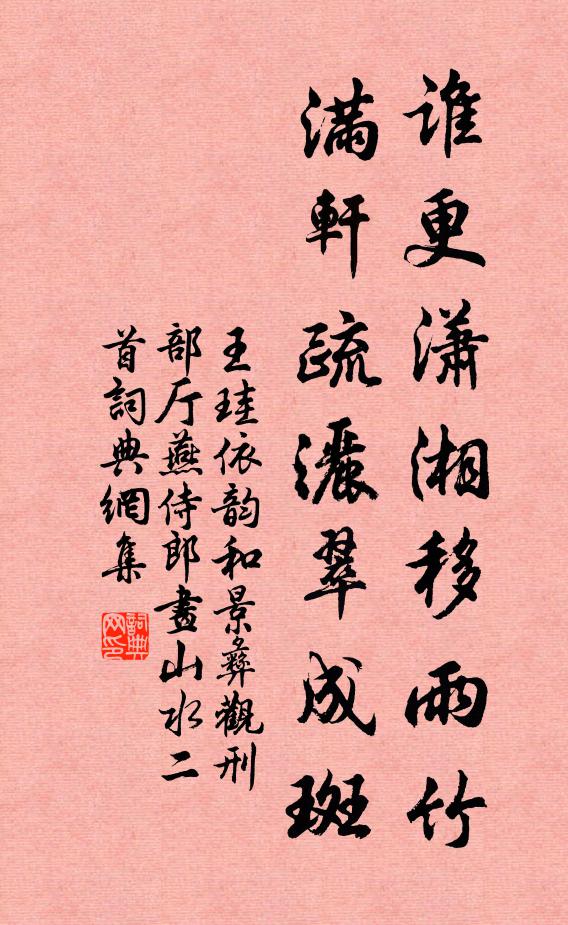 谁更瀟湘移雨竹
滿軒疏灑翠成斑
王珪依韵和景彝觀刑
部厅燕侍郎畫山水二
首詞典網集
詞典
网印